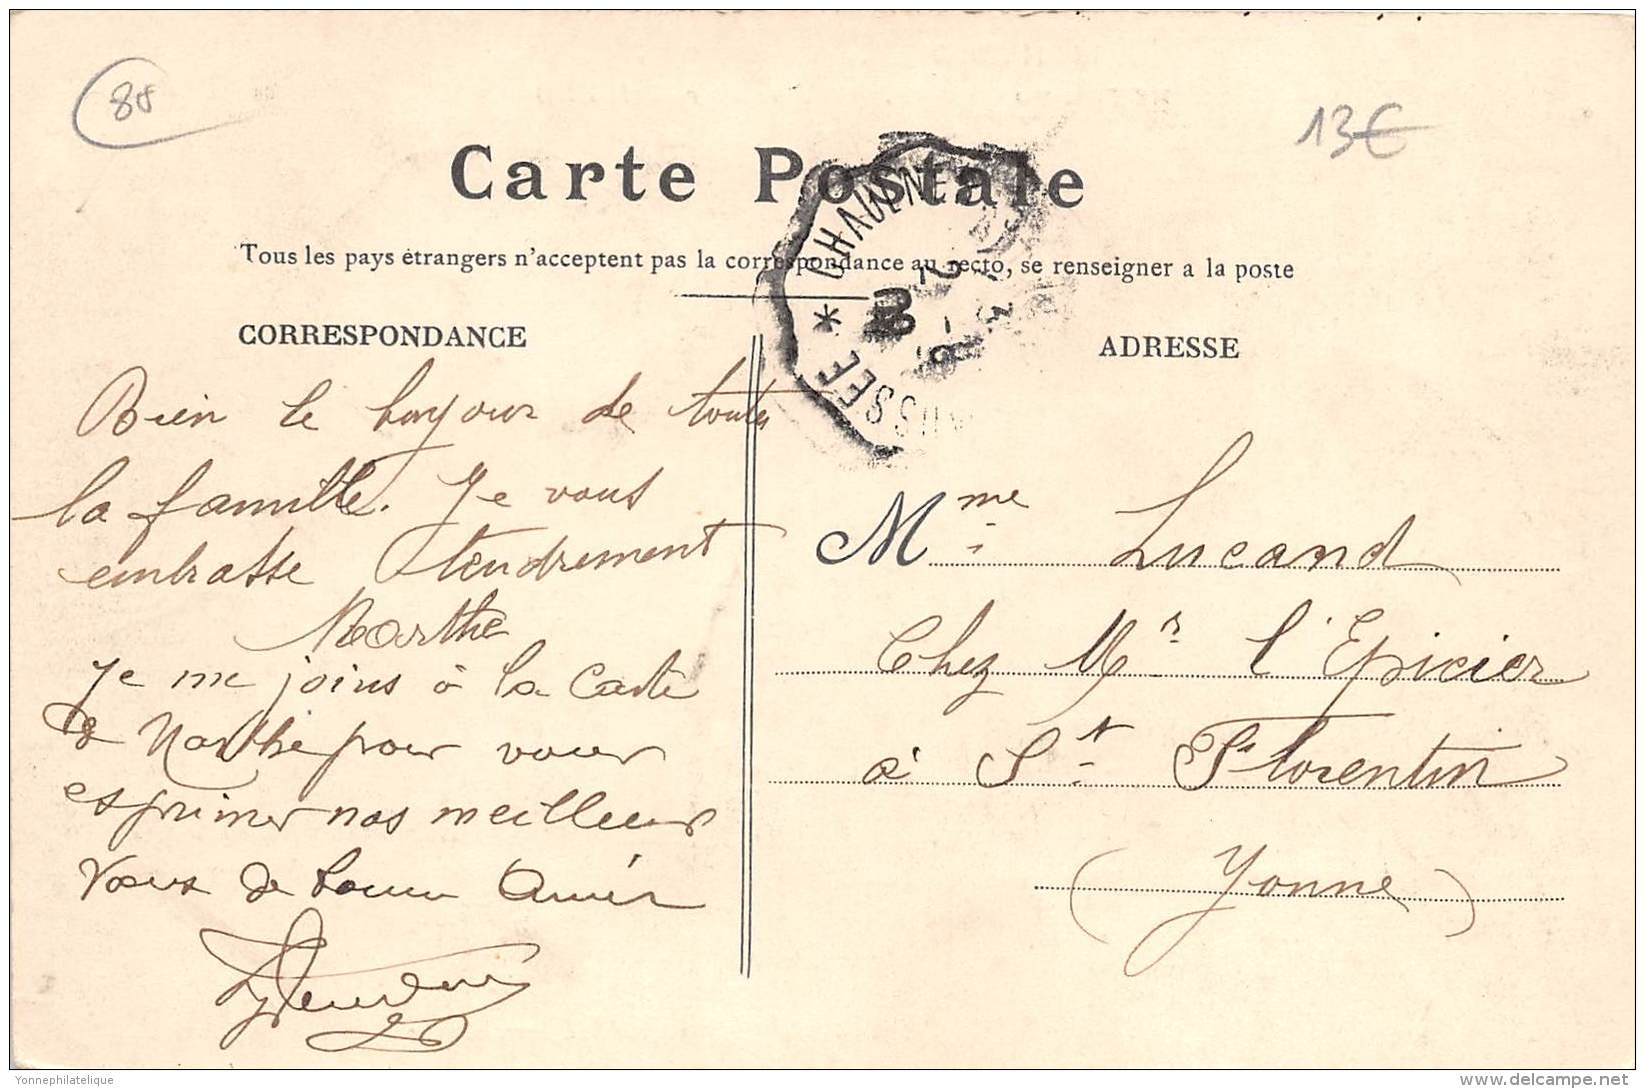 88
13€
Carte Postale
Tous les pays étrangers n'acceptent pas la correspondance au recto, se renseigner a la poste
CHAUNE
USSEE
CORRESPONDANCE
ADRESSE
Bien le bonjour de toutes
la famille. Je vous
embrasse tendrement
Marthe
Je me joins à la Carte
de Marthe pour vous
esprimer nos meilleurs
Vœux de bonne Année
Mme Lucand
Chez Mr l'Epicier
à St Florentin
(Yonne)
Yonnephilatelique
delcampe.net